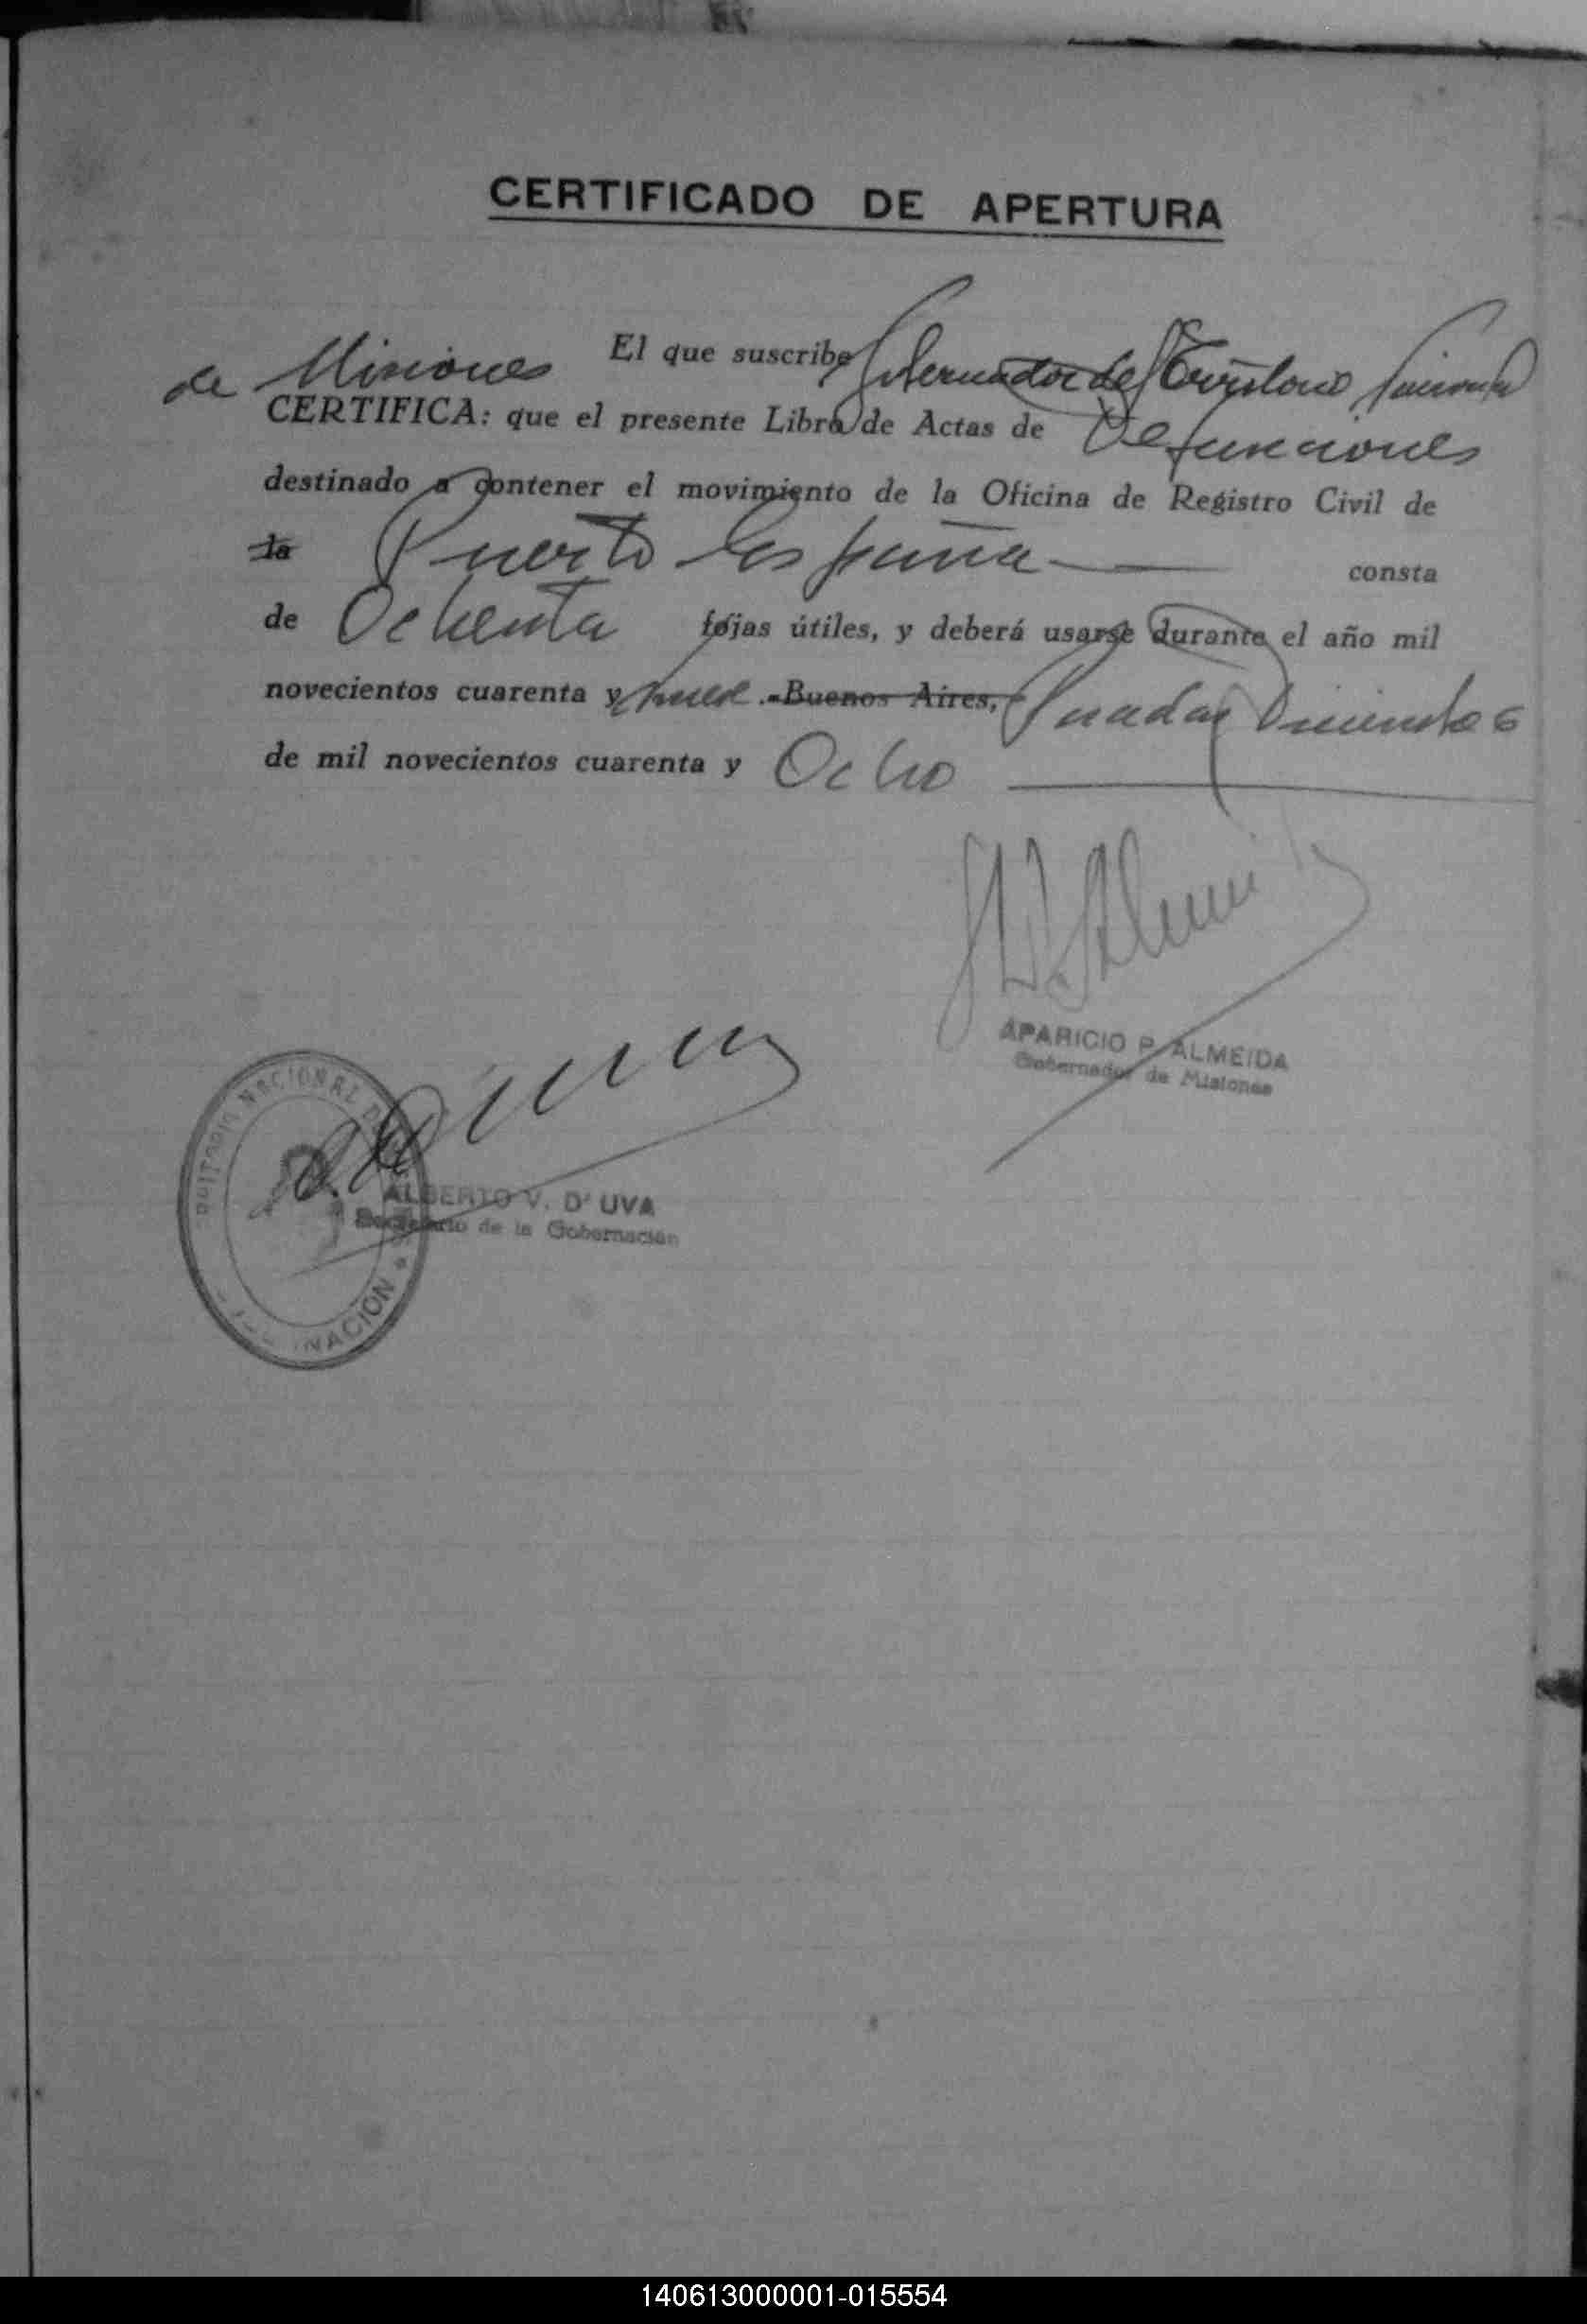 CERTIFICADO DE APERTURA
El que suscribe Gobernador del Territorio Nacional
de Misiones
CERTIFICA: que el presente Libro de Actas de Defunciones
destinado a contener el movimiento de la Oficina de Registro Civil de
la Puerto España consta
de Ochenta fojas útiles, y deberá usarse durante el año mil
novecientos cuarenta y nueve .-Buenos Aires, Posadas Diciembre
de mil novecientos cuarenta y Ocho
APARICIO P. ALMEIDA
Gobernador de Misiones
NACIONAL
ALBERTO V. D' UVA
Secretario de la Gobernación
NACION
140613000001-015554